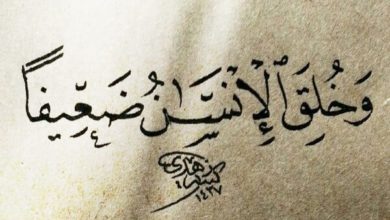 وَخُلِقَ ٱلْإِنْسَٰنُ ضَعِيفاً
١٤٣٧